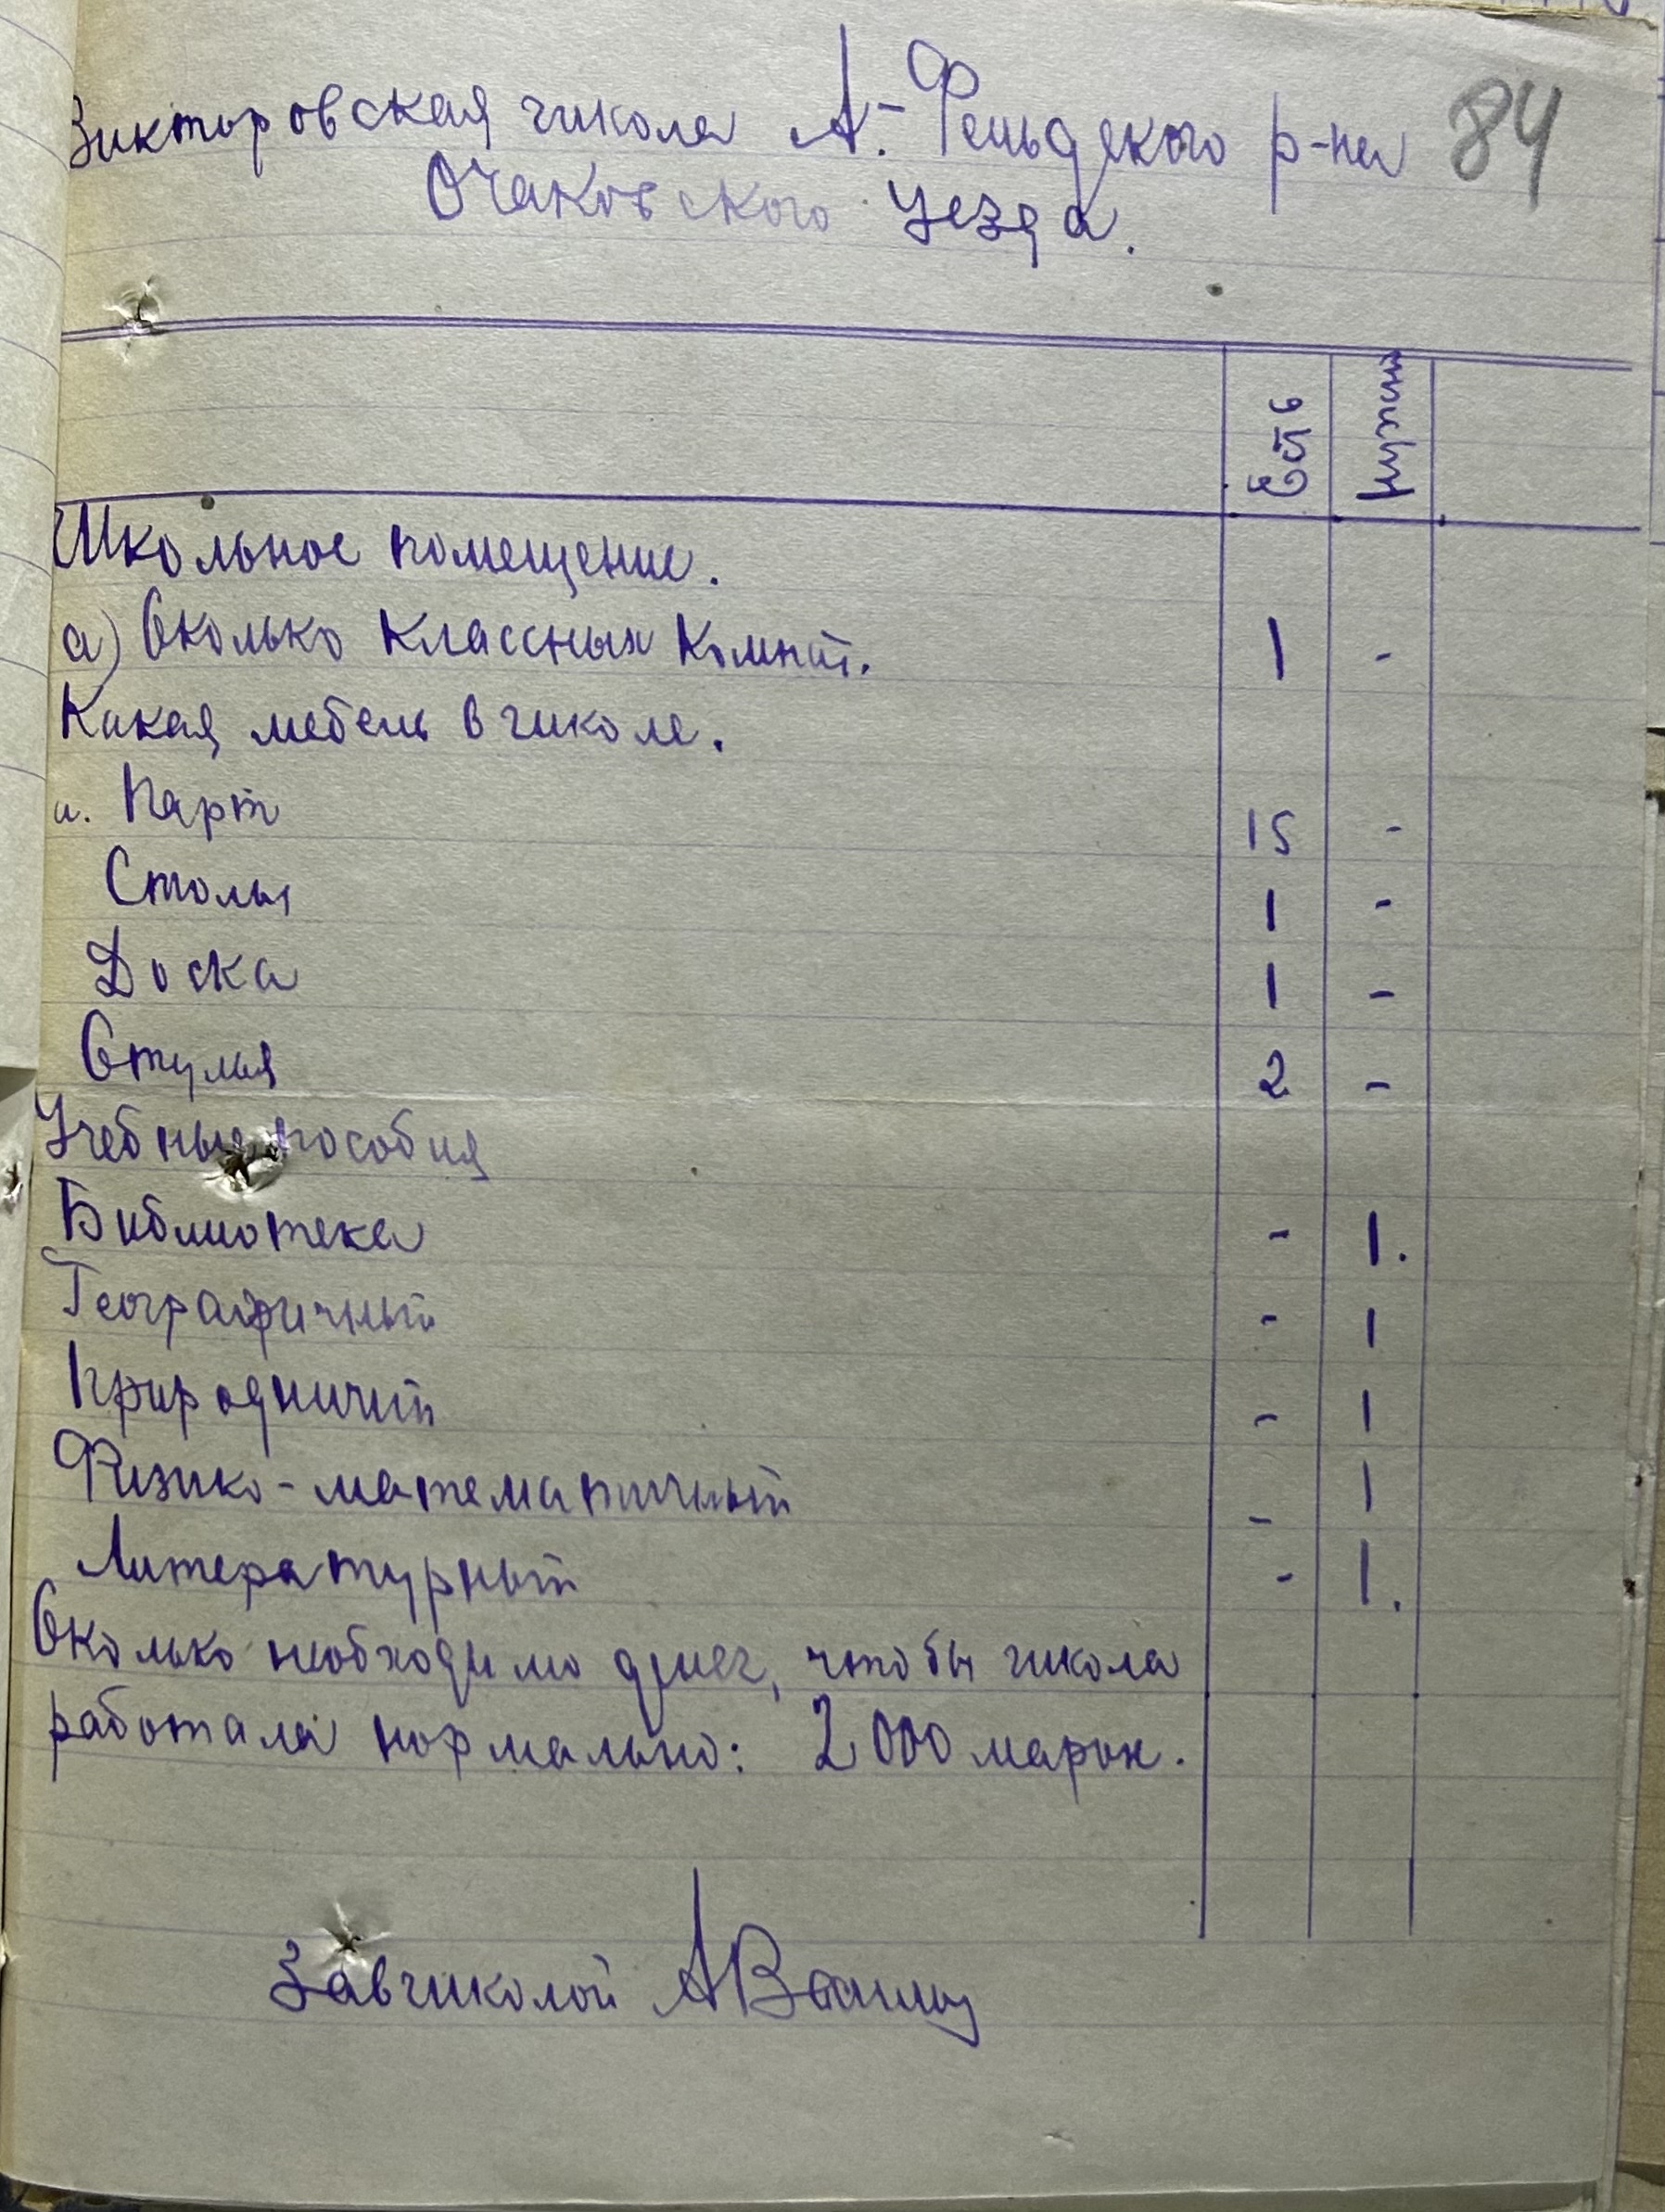 Викторовская школа А.-Фельдского р-на 84
Очаковского уезда.
Есть нужно
Школьное помещение.
а) Сколько классных комнат. 1 -
Какая мебель в школе.
а. Парт 15 -
Столы 1 -
Доска 1 -
Стулья 2 -
Учебные пособия
Библиотека - 1.
Географичный - 1
Природничий - 1
Физико-математичный - 1
Литературный - 1.
Сколько необходимо денег, чтобы школа
работала нормально: 2000 марок.
Завшколой